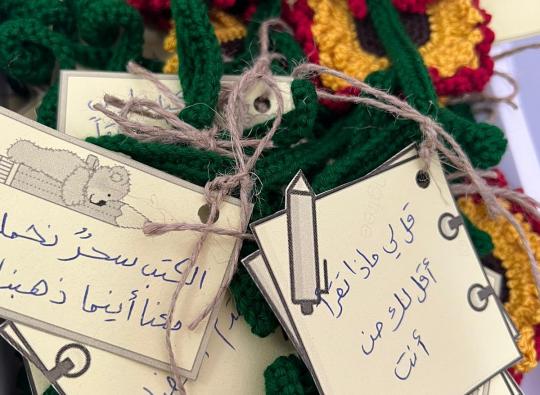 الكتب سحرٌ نحمله
معنا أينما ذهبنا
قل لي ماذا تقرأ
أقل لك من
أنت